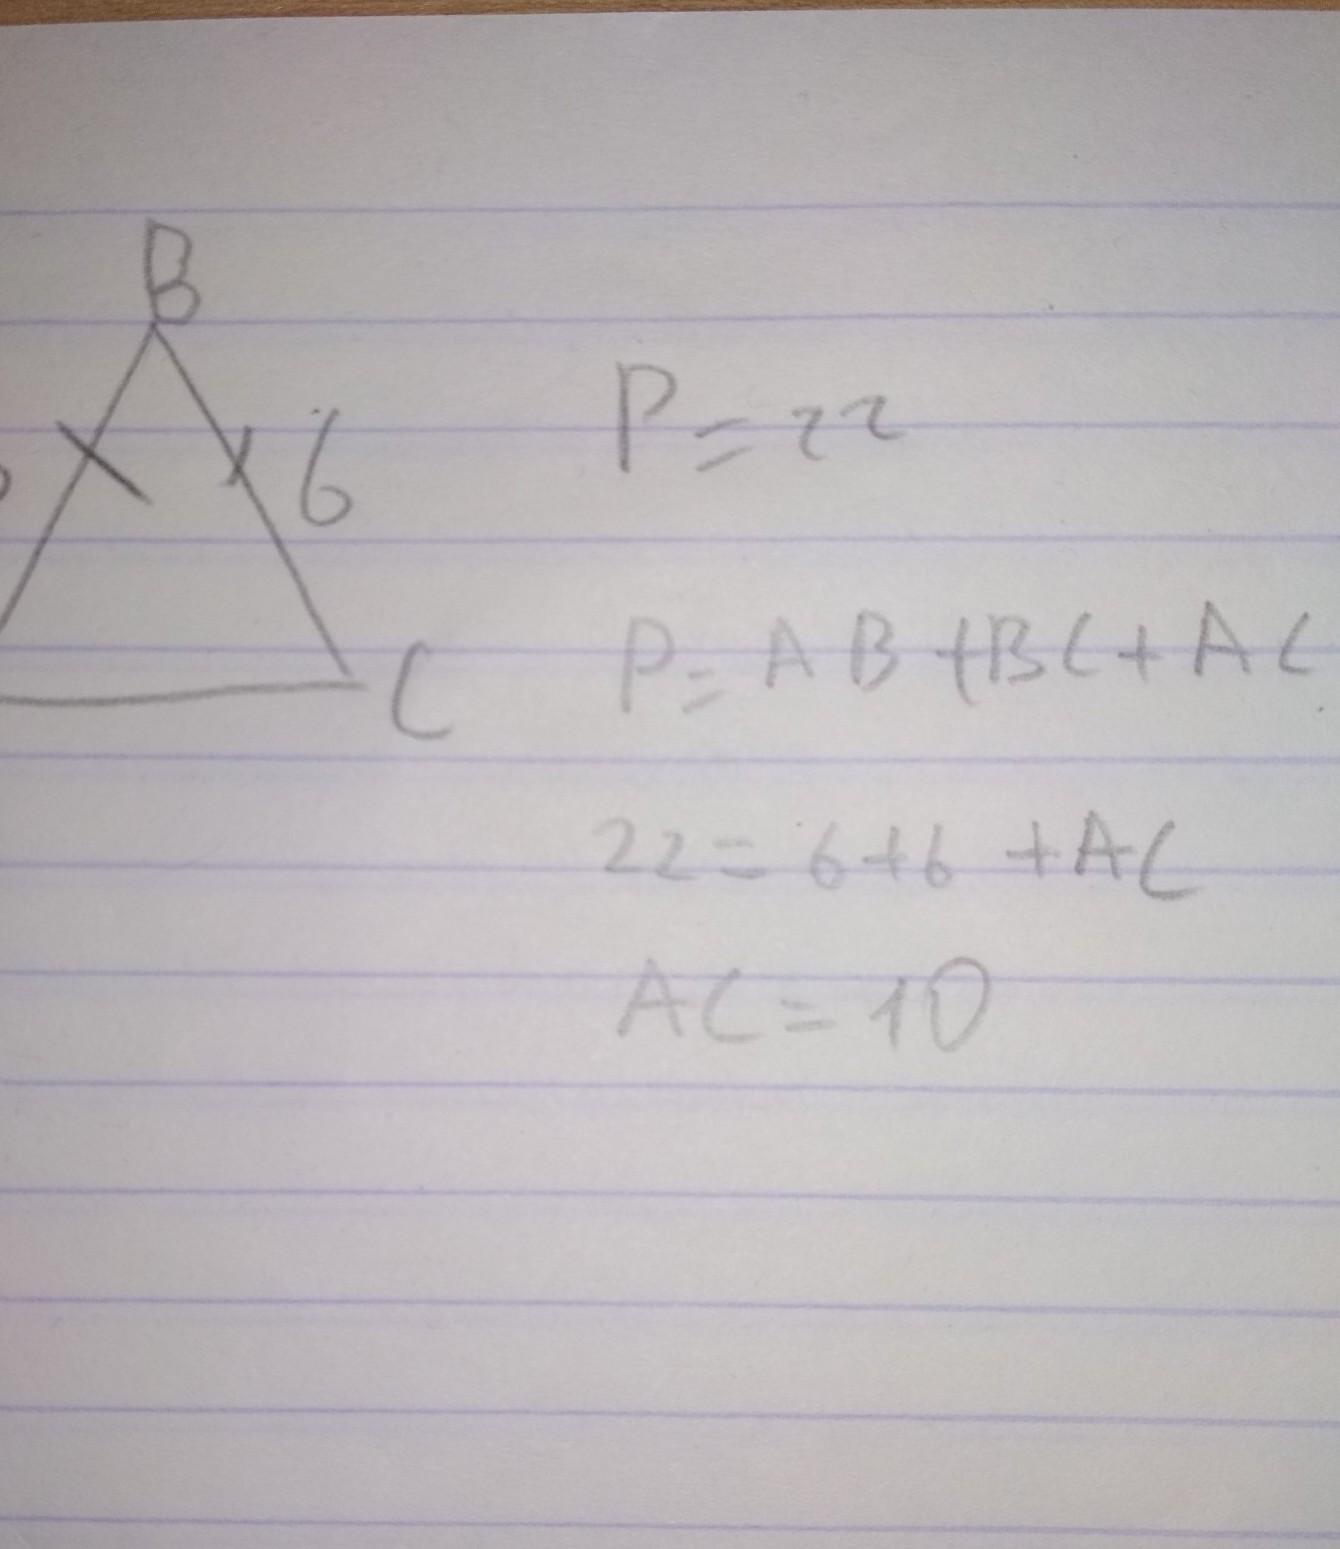 B
6
C
P=22
P=AB+BC+AC
22=6+6+AC
AC=10